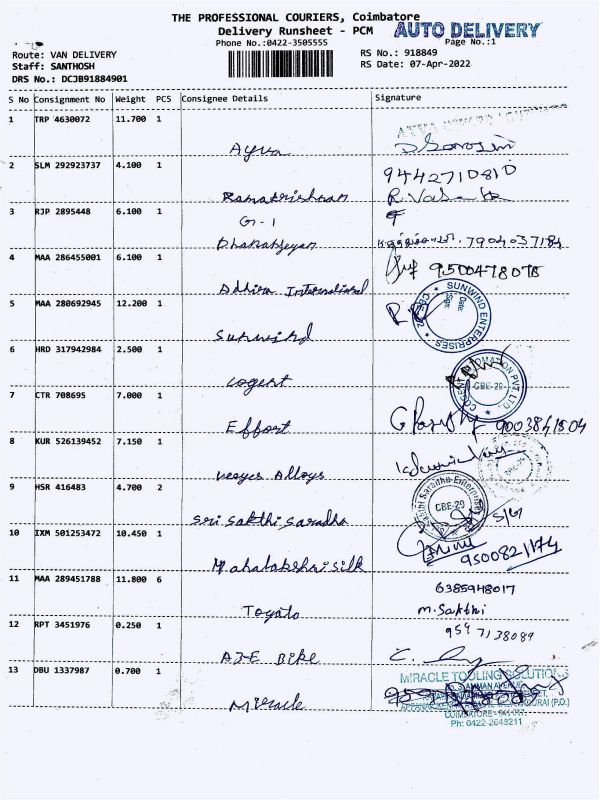 THE PROFESSIONAL COURIERS, Coimbatore
Delivery Runsheet - PCM
AUTO DELIVERY
Phone No.:0422-3505555
Page No.:1
Route: VAN DELIVERY
RS No.: 918849
Staff: SANTHOSH
RS Date: 07-Apr-2022
DRS No.: DCJB91884901
S No Consignment No Weight PCS Consignee Details Signature
1 TRP 4630072 11.700 1
2 SLM 292923737 4.100 1
9442710810
Ramakrishnan
3 RJP 2895448 6.100 1
G-1
7904037184
4 MAA 286455001 6.100 1
9500478078
Adhira International
5 MAA 280692945 12.200 1
SUNWIND ENTERPRISES
CBE-02
Sunwind
6 HRD 317942984 2.500 1
cogent
CBE-20
7 CTR 708695 7.000 1
Effort
9003841504
8 KUR 526139452 7.150 1
veeyes Alloys
9 HSR 416483 4.700 2
CBE-20
Sri Sakthi Saradha
10 IXM 501253472 10.450 1
Mahalakshmi silk
11 MAA 289451788 11.800 6
6385948017
M. Sakthi
12 RPT 3451976 0.250 1
9597138089
Bike
13 DBU 1337987 0.700 1
MIRACLE TOOLING SOLUTIONS
Miracle
Ph: 0422-2643211